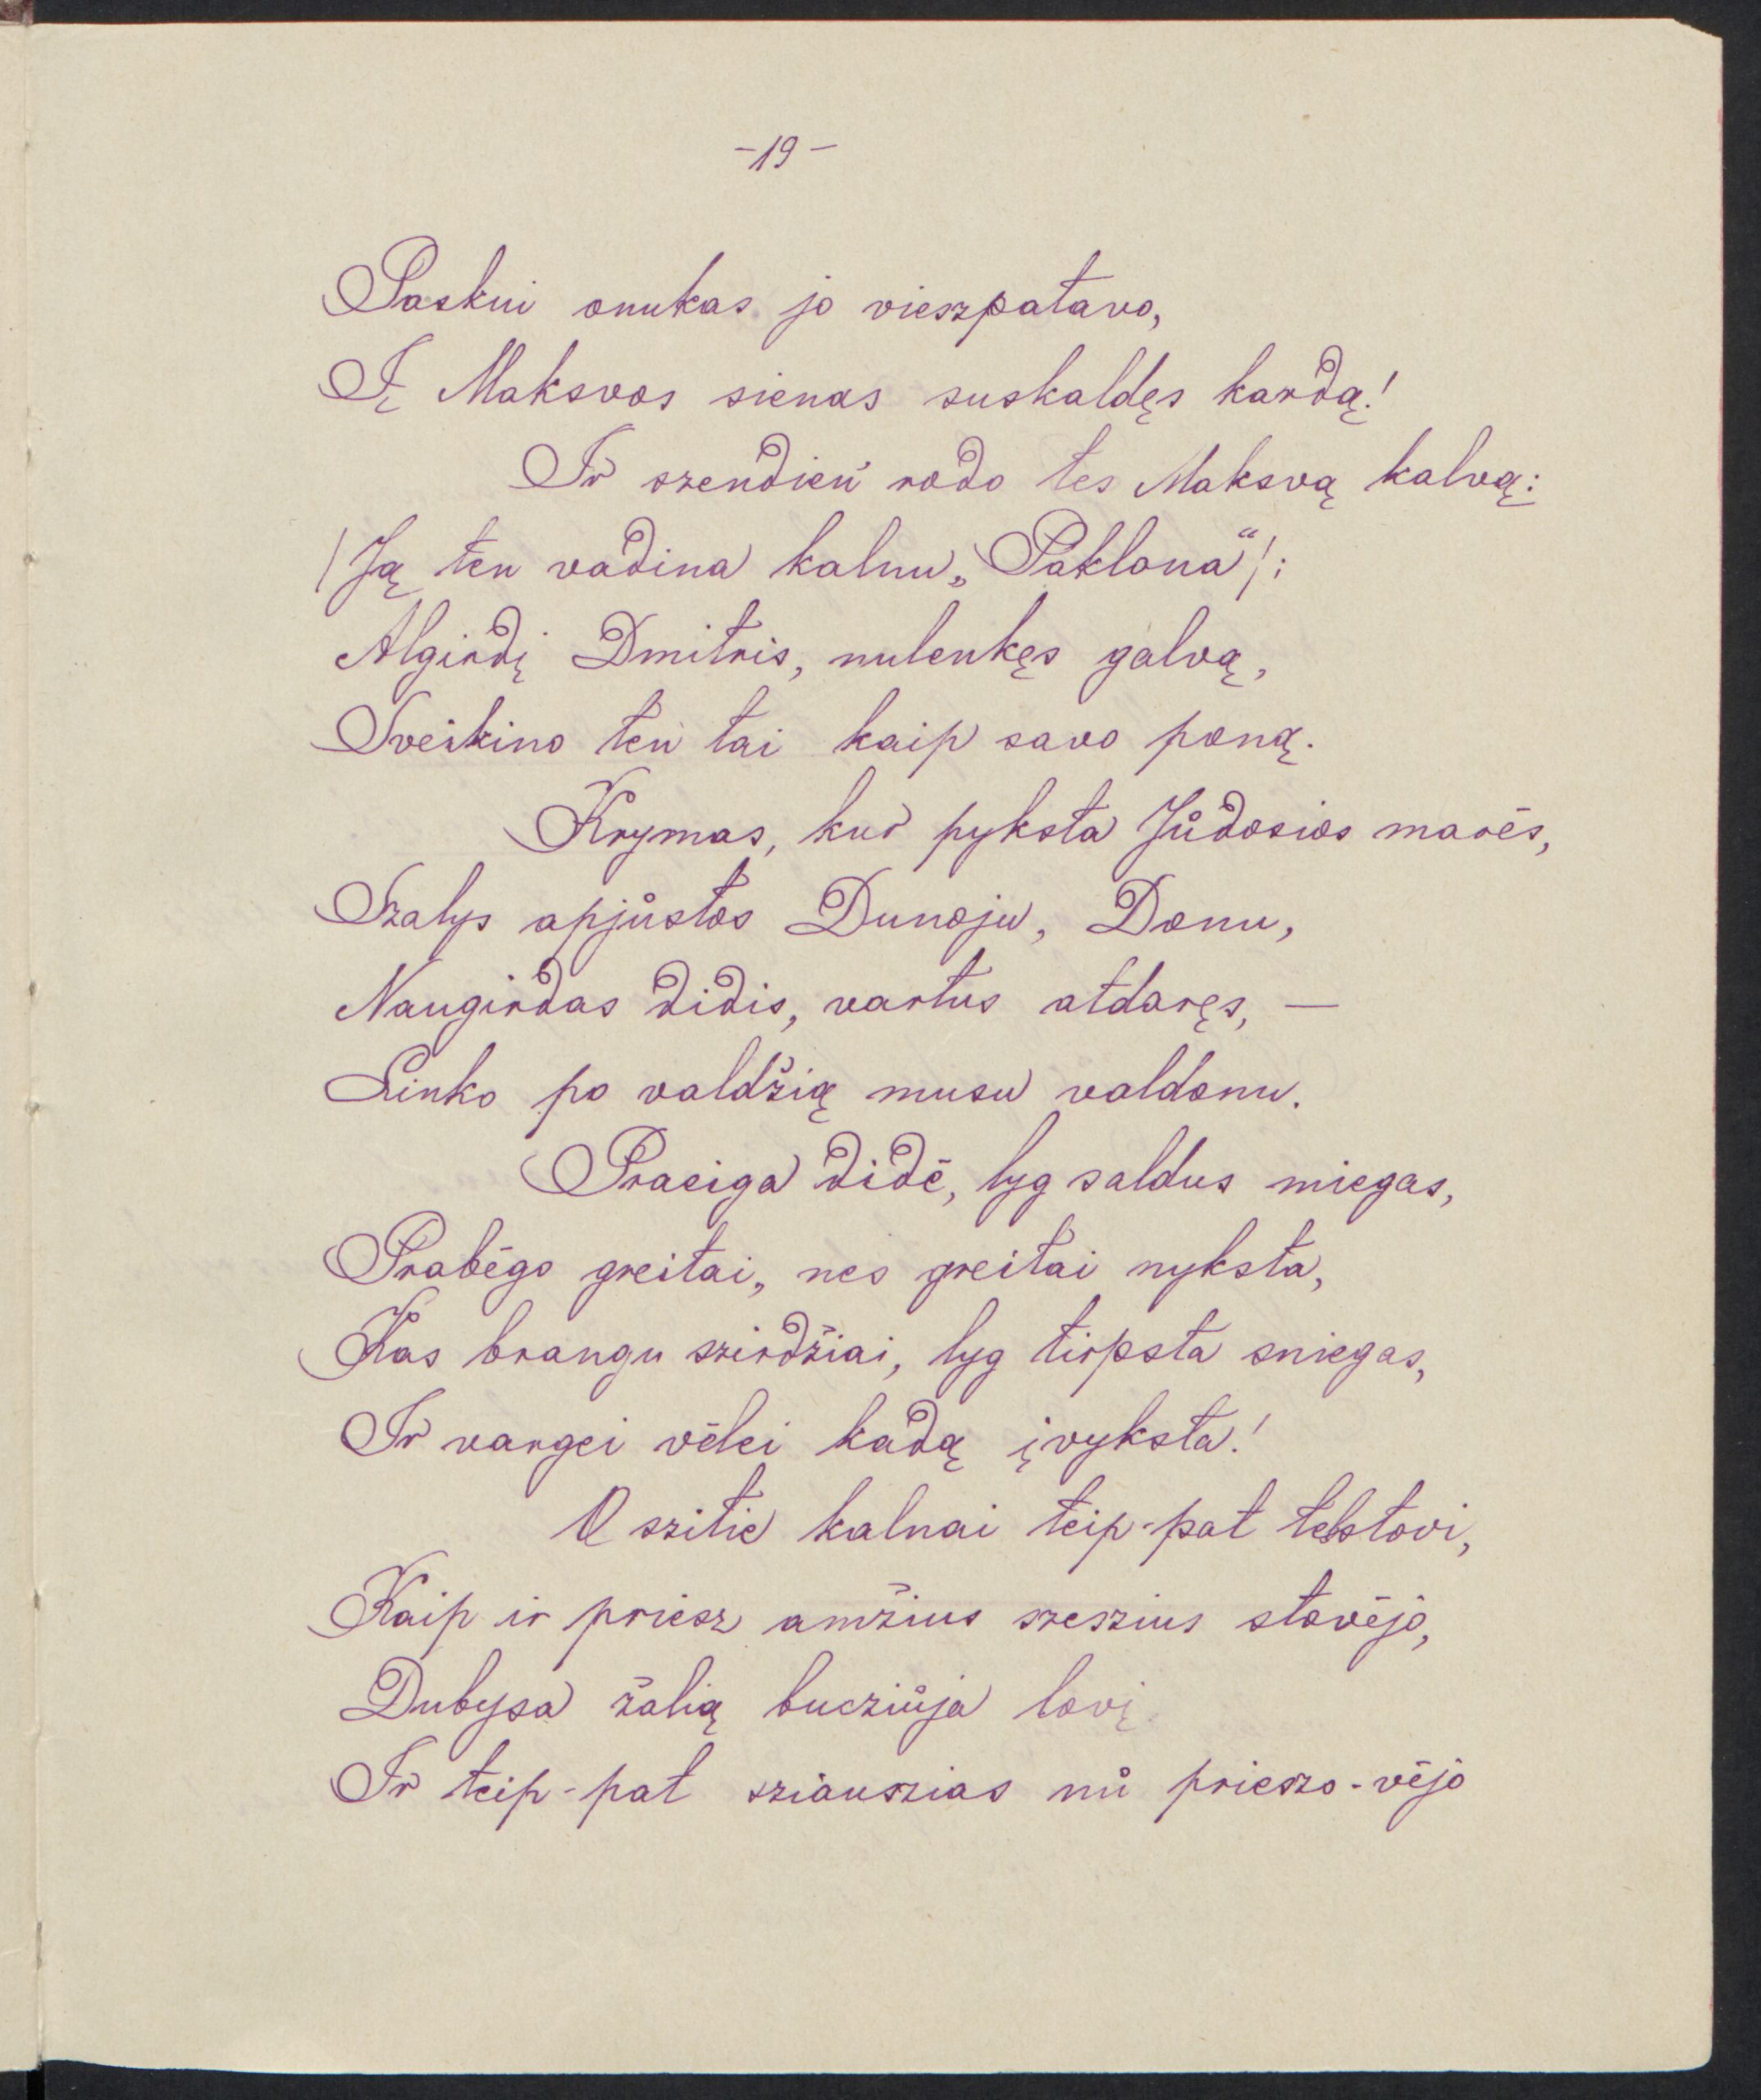 -19-
Paskui onukas jo vieszpatavo,
Į Maksvos sienas suskaldęs kardą!
Ir szendien rodo tes Maksvą kalvą:
/Ją ten vadina kalnu „Paklona“/:
Algirdį Dmitris, nulenkęs galvą,
Sveikino ten tai kaip savo poną.
Krymas, kur pyksta Jůdosios marēs,
Szalys apjůstos Dunoju, Donu,
Naugirdas didis, vartus atdaręs, —
Linko po valdžią musu valdonu.
Praeiga didē, lyg saldus miegas,
Prabēgo greitai, nes greitai nyksta,
Kas brangu szirdžiai, lyg tirpsta sniegas,
Ir vargei vēlei kadą įvyksta!
O szitie kalnai teip-pat tebstovi,
Kaip ir priesz amžius szeszius stovējo,
Dubysa žalią bucziůja lovį
Ir teip-pat sziauszias nů prieszo-vējo